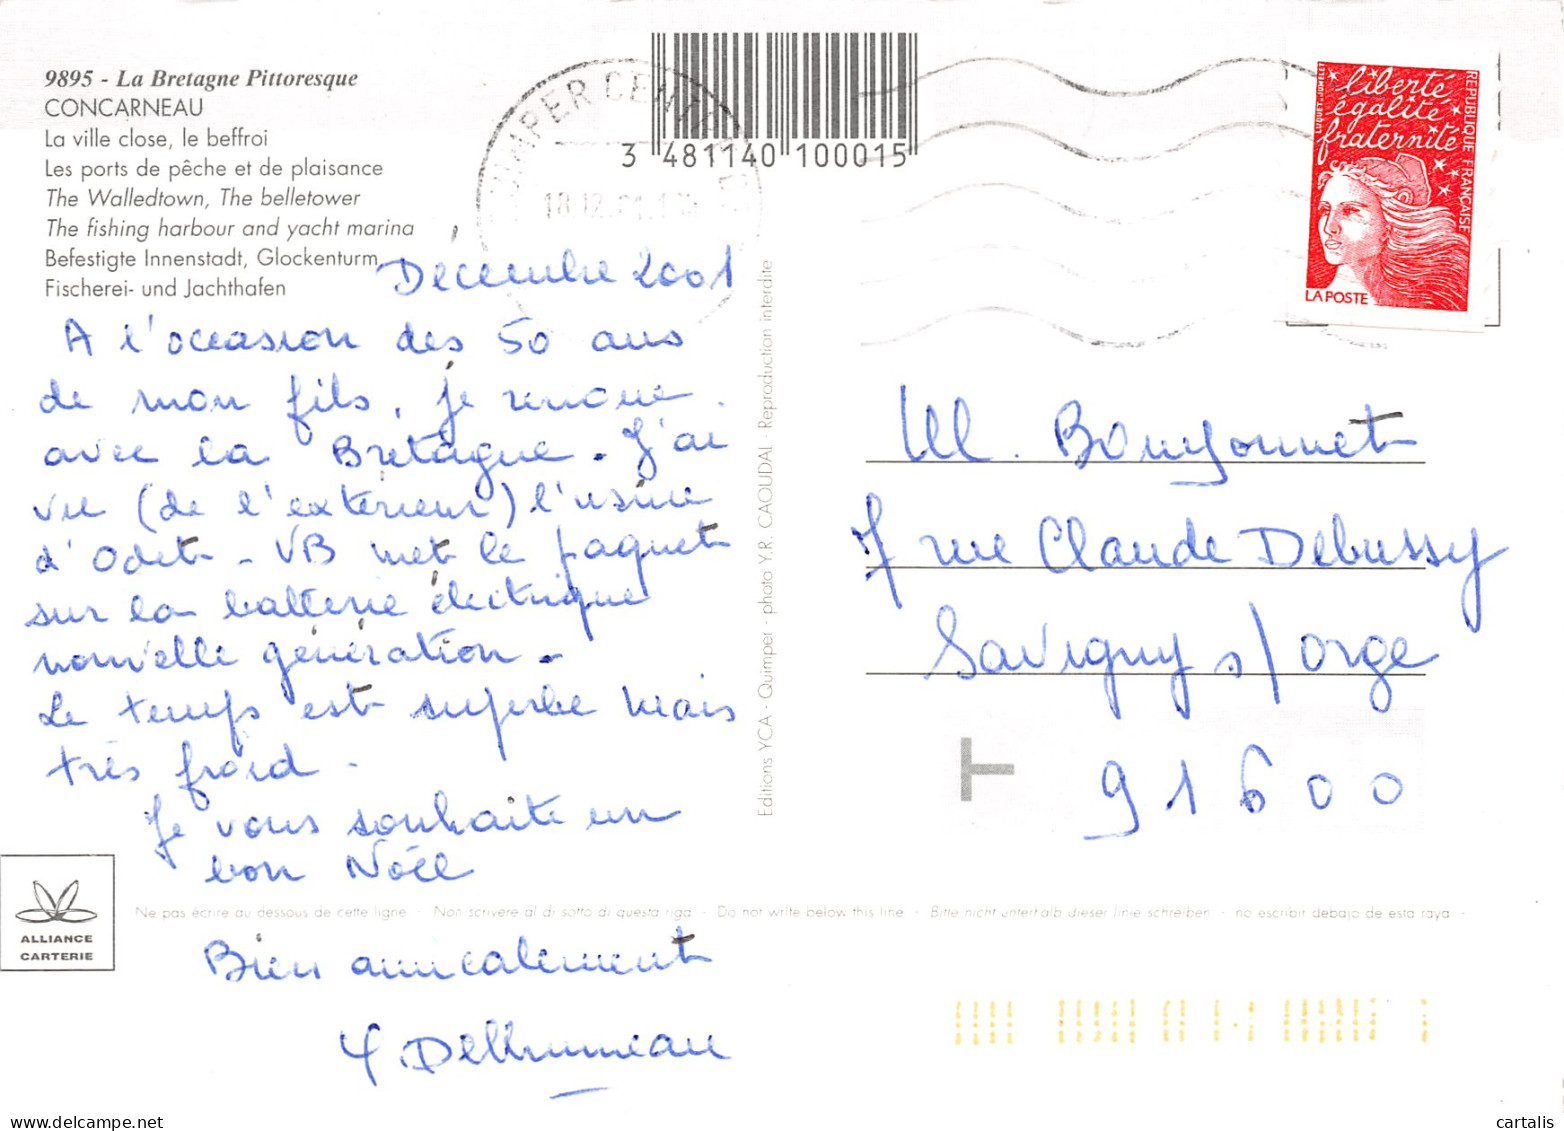 9895 - La Bretagne Pittoresque
CONCARNEAU
La ville close, le beffroi
Les ports de pêche et de plaisance
The Walledtown, The belletower
The fishing harbour and yacht marina
Befestigte Innenstadt, Glockenturm,
Fischerei- und Jachthafen
3 481140 100015
QUIMPER CENTRE
liberté
égalité
fraternité
RÉPUBLIQUE FRANÇAISE
LA POSTE
LUQUET-JUMELET
Décembre 2001
A l'occasion des 50 ans
de mon fils, je renoue
avec la Bretagne. J'ai
vu (de l'extérieur) l'usine
d'Odet - VB met le paquet
sur la batterie électrique
nouvelle génération.
Le temps est superbe mais
très froid.
Je vous souhaite un
bon Noël
Bien amicalement
Editions YCA - Quimper - photo Y.R. CAOUDAL - Reproduction interdite
M. Bouyonnet
7 rue Claude Debussy
Savigny s/ orge
91600
ALLIANCE
CARTERIE
Ne pas écrire au dessous de cette ligne - Non scrivere al di sotto di questa riga - Do not write below this line - Bitte nicht unterhalb dieser linie schreiben - no escribir debajo de esta raya -
cartalis